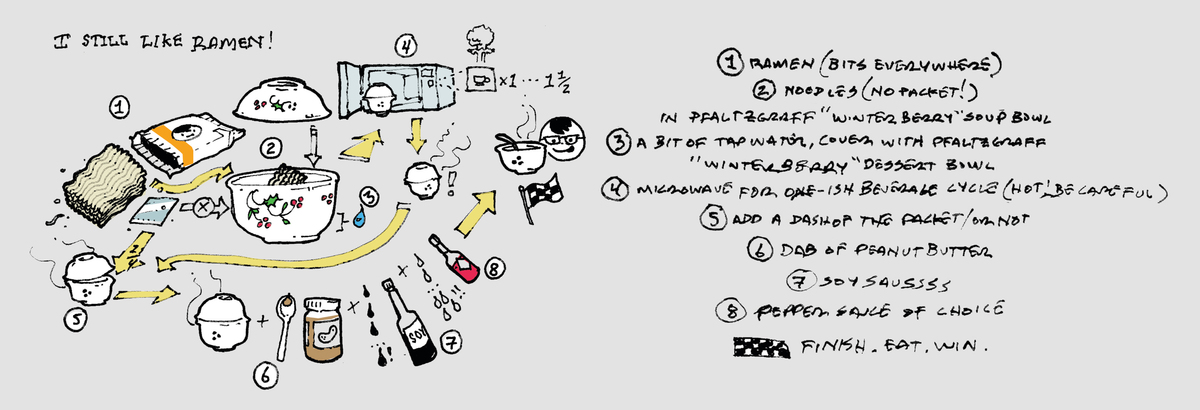 I STILL LIKE RAMEN!
1
2
3
4
×1 ... 1 1/2
!
5
6
+
×
+
SOY
7
8
1 RAMEN (BITS EVERYWHERE)
2 NOODLES (NO PACKET!)
IN PFALTZGRAFF "WINTERBERRY" SOUP BOWL
3 A BIT OF TAP WATER, COVER WITH PFALTZGRAFF
"WINTERBERRY" DESSERT BOWL
4 MICROWAVE FOR ONE-ISH BEVERAGE CYCLE (HOT! BE CAREFUL)
5 ADD A DASH OF THE PACKET/OR NOT
6 DAB OF PEANUT BUTTER
7 SOY SAUSSSS
8 PEPPER SAUCE OF CHOICE
FINISH. EAT. WIN.